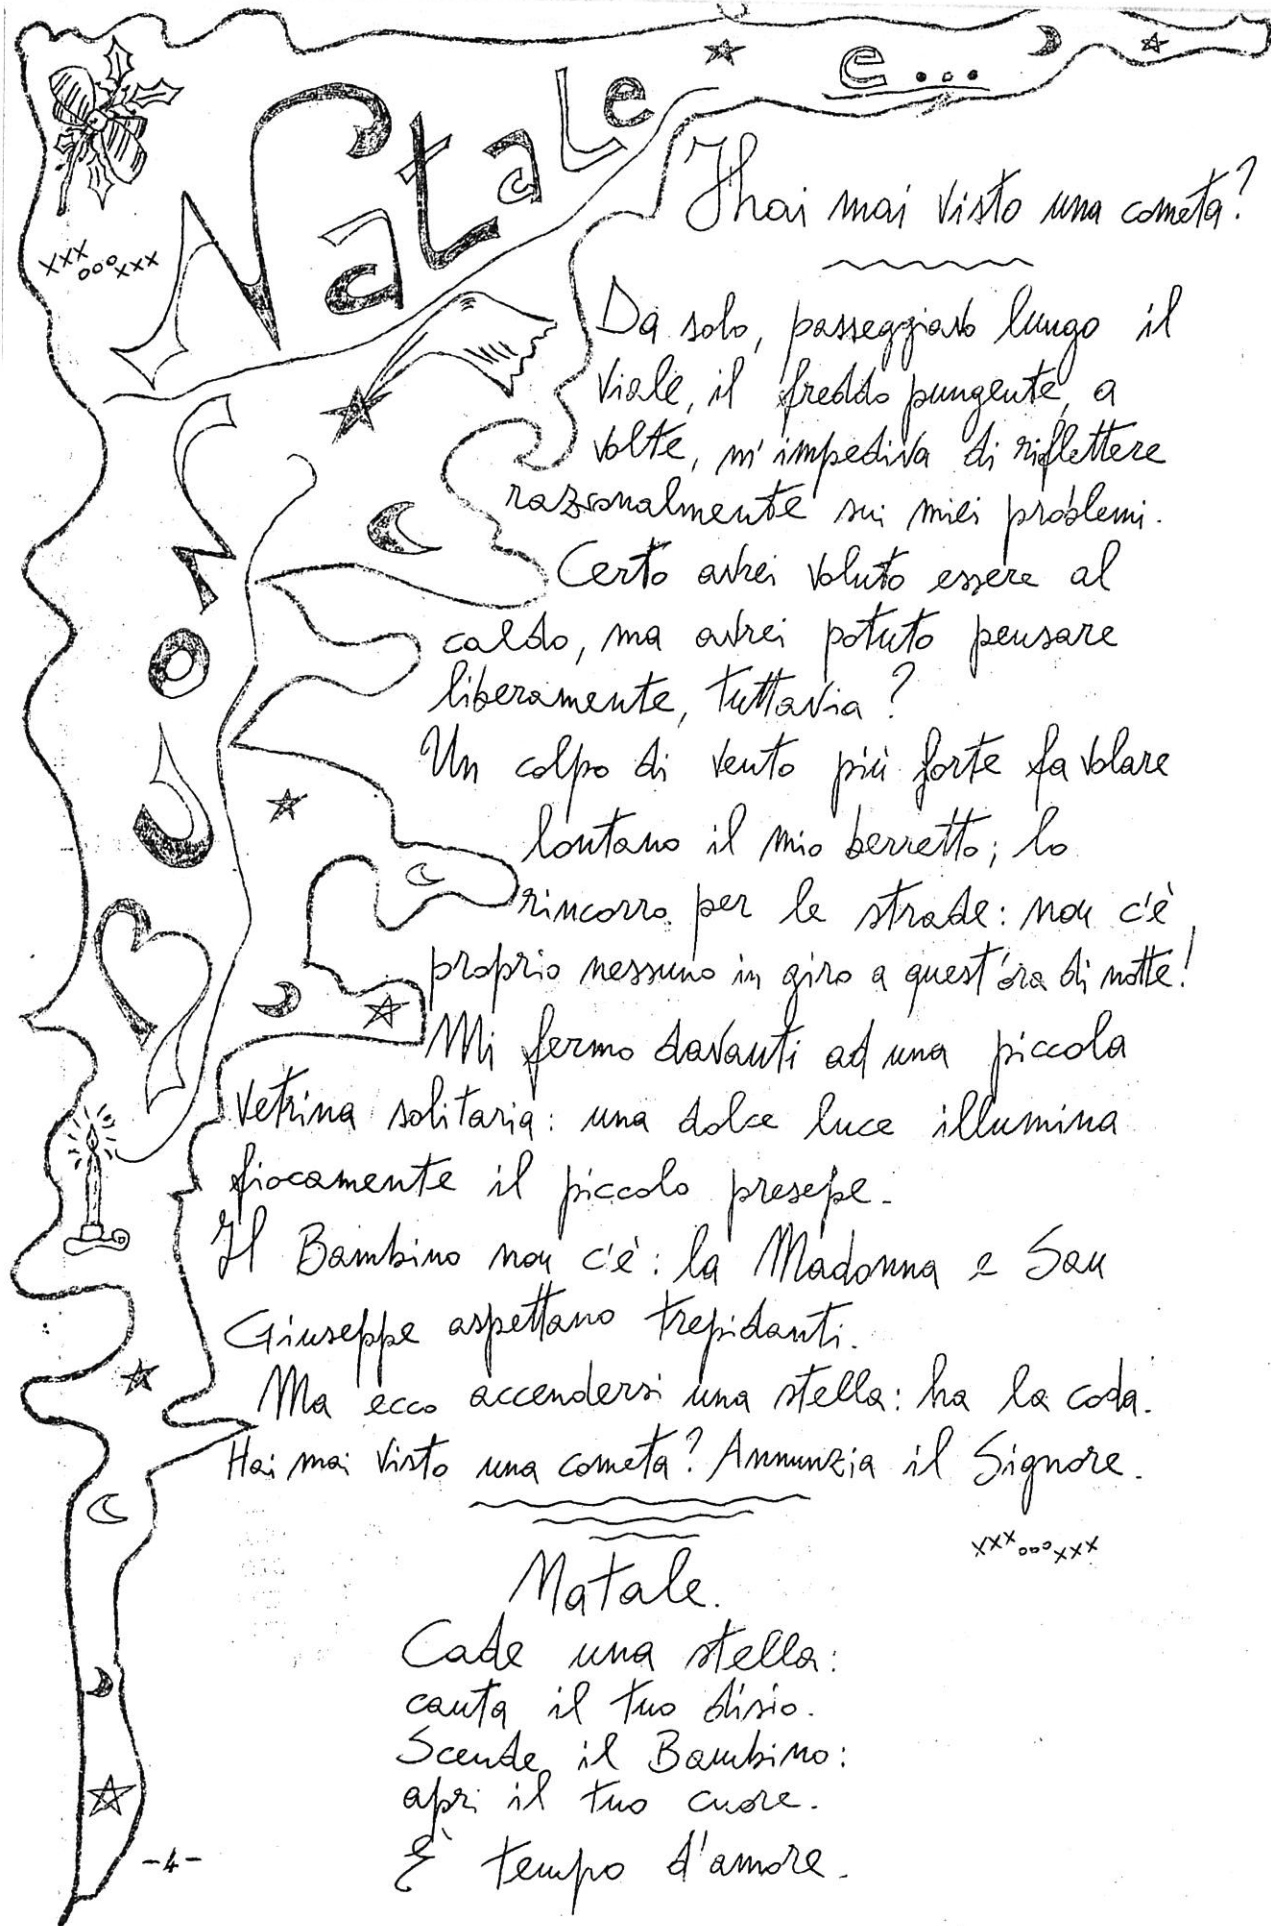 Natale e...
xxxoooxxx
Hai mai visto una cometa?
Da solo, passeggiavo lungo il
viale, il freddo pungente, a
volte, m'impediva di riflettere
razionalmente sui miei problemi.
Certo avrei voluto essere al
caldo, ma avrei potuto pensare
liberamente, tuttavia?
Un colpo di vento più forte fa volare
lontano il mio berretto; lo
rincorro per le strade: non c'è
proprio nessuno in giro a quest'ora di notte!
Mi fermo davanti ad una piccola
vetrina solitaria: una dolce luce illumina
fiocamente il piccolo presepe.
Il Bambino non c'è: la Madonna e San
Giuseppe aspettano trepidanti.
Ma ecco accendersi una stella: ha la coda.
Hai mai visto una cometa? Annunzia il Signore.
xxxoooxxx
Natale.
Cade una stella:
canta il tuo disio.
Scende il Bambino:
apri il tuo cuore.
È tempo d'amore.
-4-